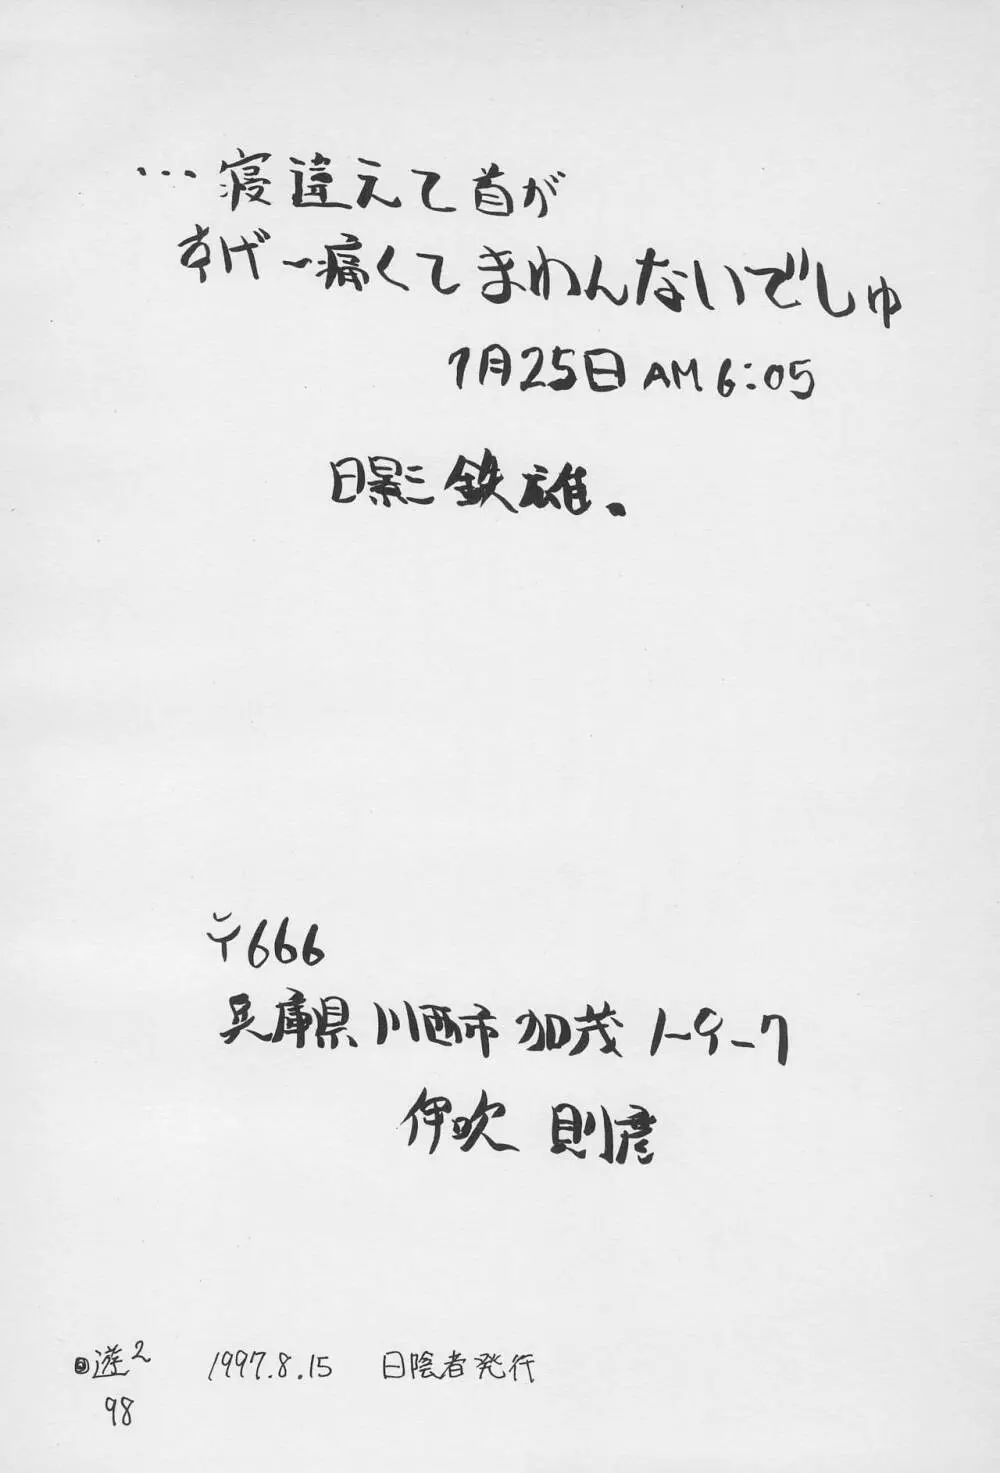 …寝違えて首が
すげー痛くてまわんないでしゅ
7月25日AM6:05
日影鉄雄。
〒666
兵庫県川西市加茂1-9-7
伊吹 則彦
回遊2 1997.8.15 日陰者発行
98